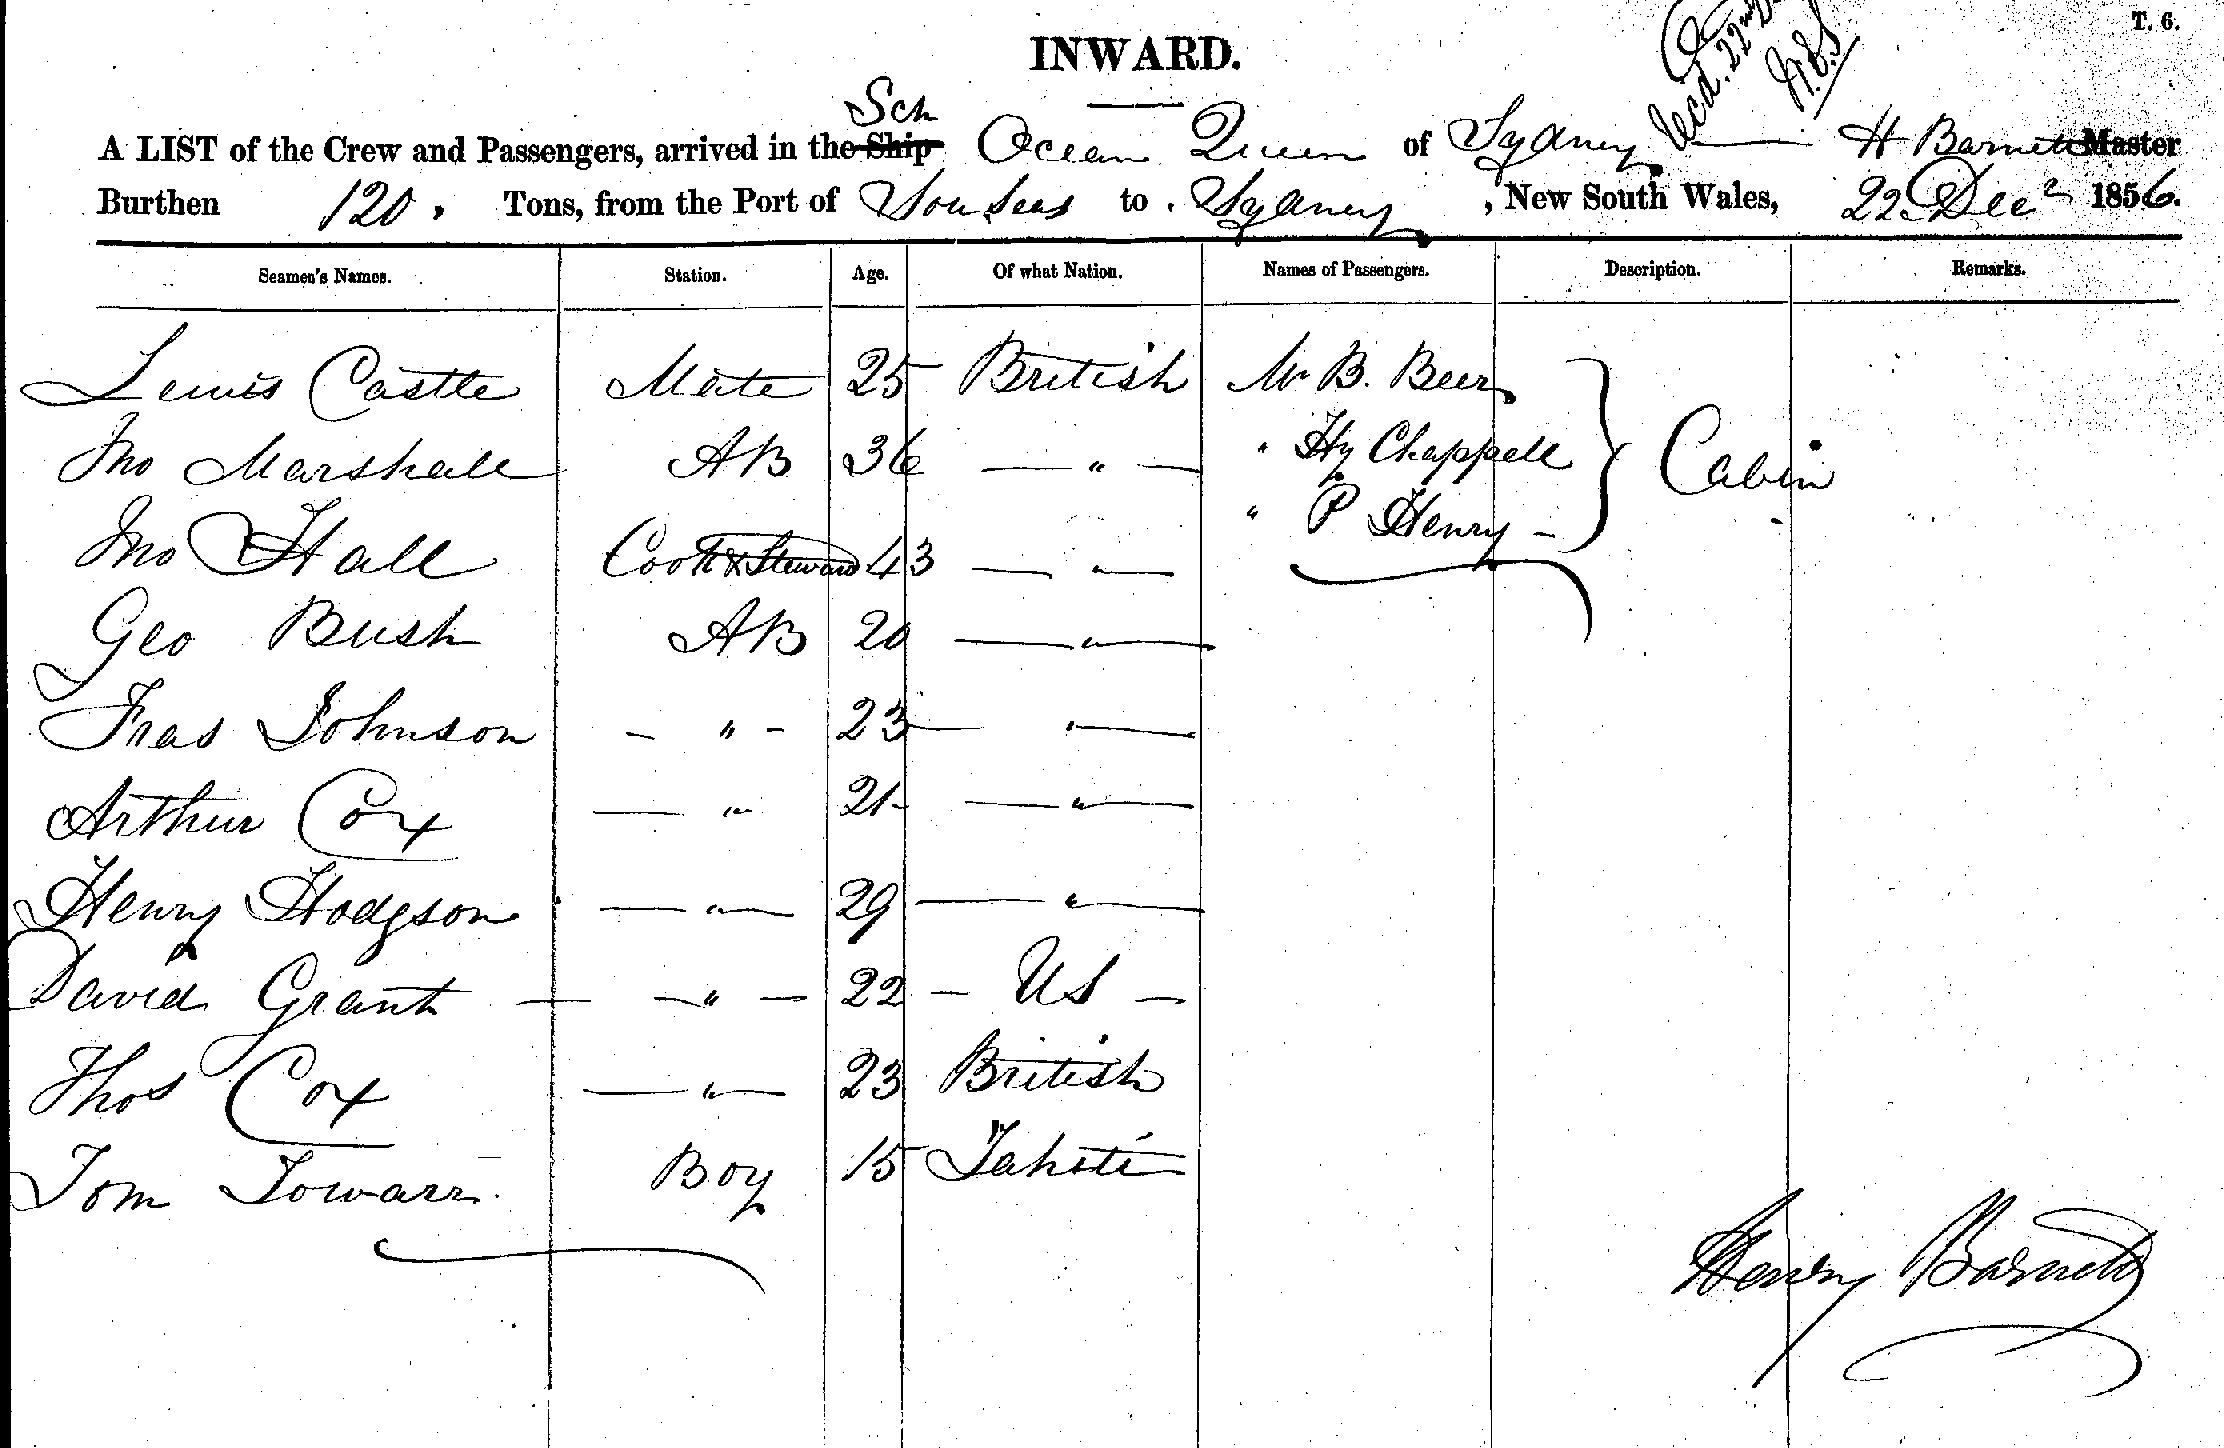 T. 6.
INWARD.
Recd. 22nd
Sch
A LIST of the Crew and Passengers, arrived in the Ship Ocean Queen of Sydney H Barnett Master
Burthen 120. Tons, from the Port of Sou Seas to Sydney, New South Wales, 22 Decr 1856.
Seamen's Names. Station. Age. Of what Nation. Names of Passengers. Description. Remarks.
Lewis Castle Mate 25 British Mr B. Beer
Jno Marshall AB 36 — " — " Hy Chappell Cabin
Jno Hall Cook & Steward 43 — " — " P Henry —
Geo Bush AB 20 — " —
Fras Johnson – " – 23 — " —
Arthur Cox — " 21 — " —
Henry Hodgson — " — 29 — " —
David Grant — — " — 22 — US —
Thos Cox — " — 23 British
Tom Towarr Boy 15 Tahiti
Henry Barnett